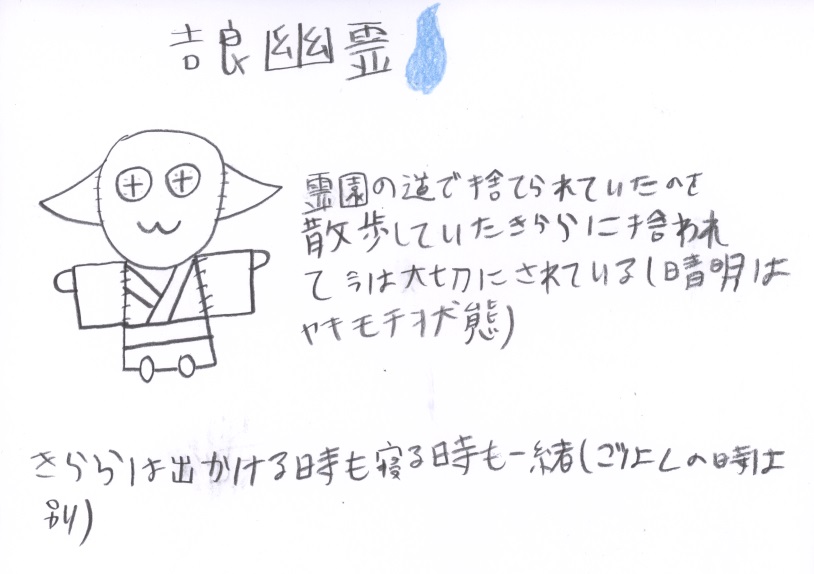 吉良幽霊
霊園の道で捨てられていたのを
散歩していたきららに拾われ
て今は大切にされている(晴明は
ヤキモチ状態)
きららは出かける時も寝る時も一緒(ごりよしの時は
別)